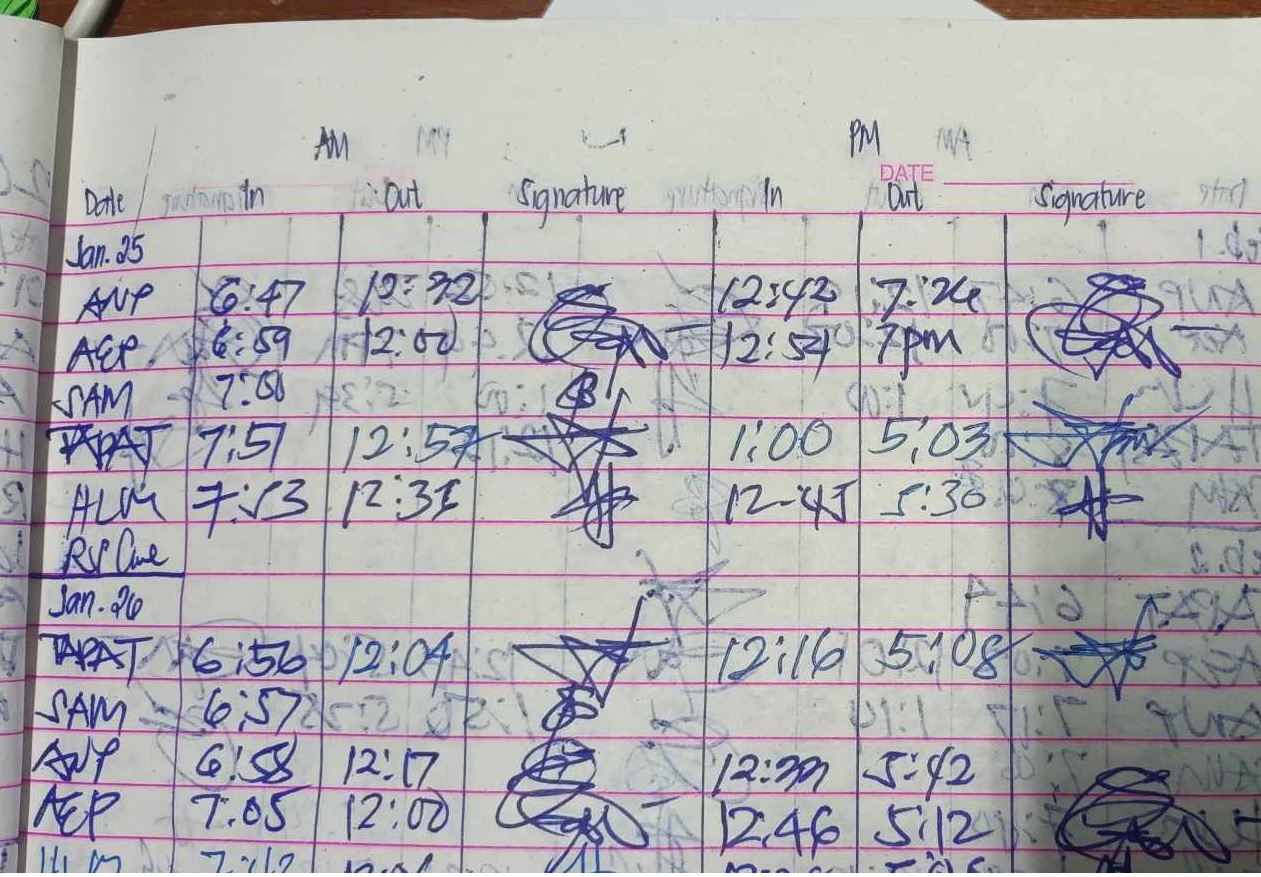 AM PM
DATE
Date In Out Signature In Out Signature
Jan. 25
ANP 6:47 12:32 12:42 7:24
AEP 6:59 12:00 12:54 7pm
SAM 7:00
TAPAT 7:51 12:57 1:00 5:03
HLM 7:53 12:31 12:45 5:30
Jan. 26
TAPAT 6:56 12:04 12:16 5:08
SAM 6:57
ANP 6:58 12:17 12:39 5:42
AEP 7:05 12:00 12:46 5:12
HLM 7:12